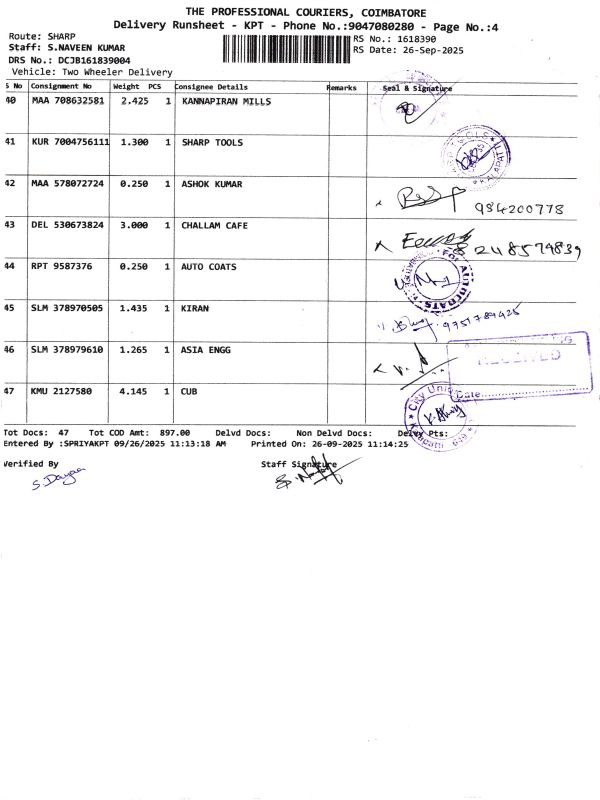 THE PROFESSIONAL COURIERS, COIMBATORE
Delivery Runsheet - KPT - Phone No.:9047080280 - Page No.:4
Route: SHARP
RS No.: 1618390
Staff: S.NAVEEN KUMAR
RS Date: 26-Sep-2025
DRS No.: DCJB161839004
Vehicle: Two Wheeler Delivery
S No Consignment No Weight PCS Consignee Details Remarks Seal & Signature
40 MAA 708632581 2.425 1 KANNAPIRAN MILLS
41 KUR 7004756111 1.300 1 SHARP TOOLS
42 MAA 578072724 0.250 1 ASHOK KUMAR
984200778
43 DEL 530673824 3.000 1 CHALLAM CAFE
8248574839
44 RPT 9587376 0.250 1 AUTO COATS
45 SLM 378970505 1.435 1 KIRAN
9751789425
46 SLM 378979610 1.265 1 ASIA ENGG
RECEIVED
Date
47 KMU 2127580 4.145 1 CUB
City Union
Tot Docs: 47 Tot COD Amt: 897.00 Delvd Docs: Non Delvd Docs: Delvy Pts:
Entered By :SPRIYAKPT 09/26/2025 11:13:18 AM Printed On: 26-09-2025 11:14:25
Verified By Staff Signature